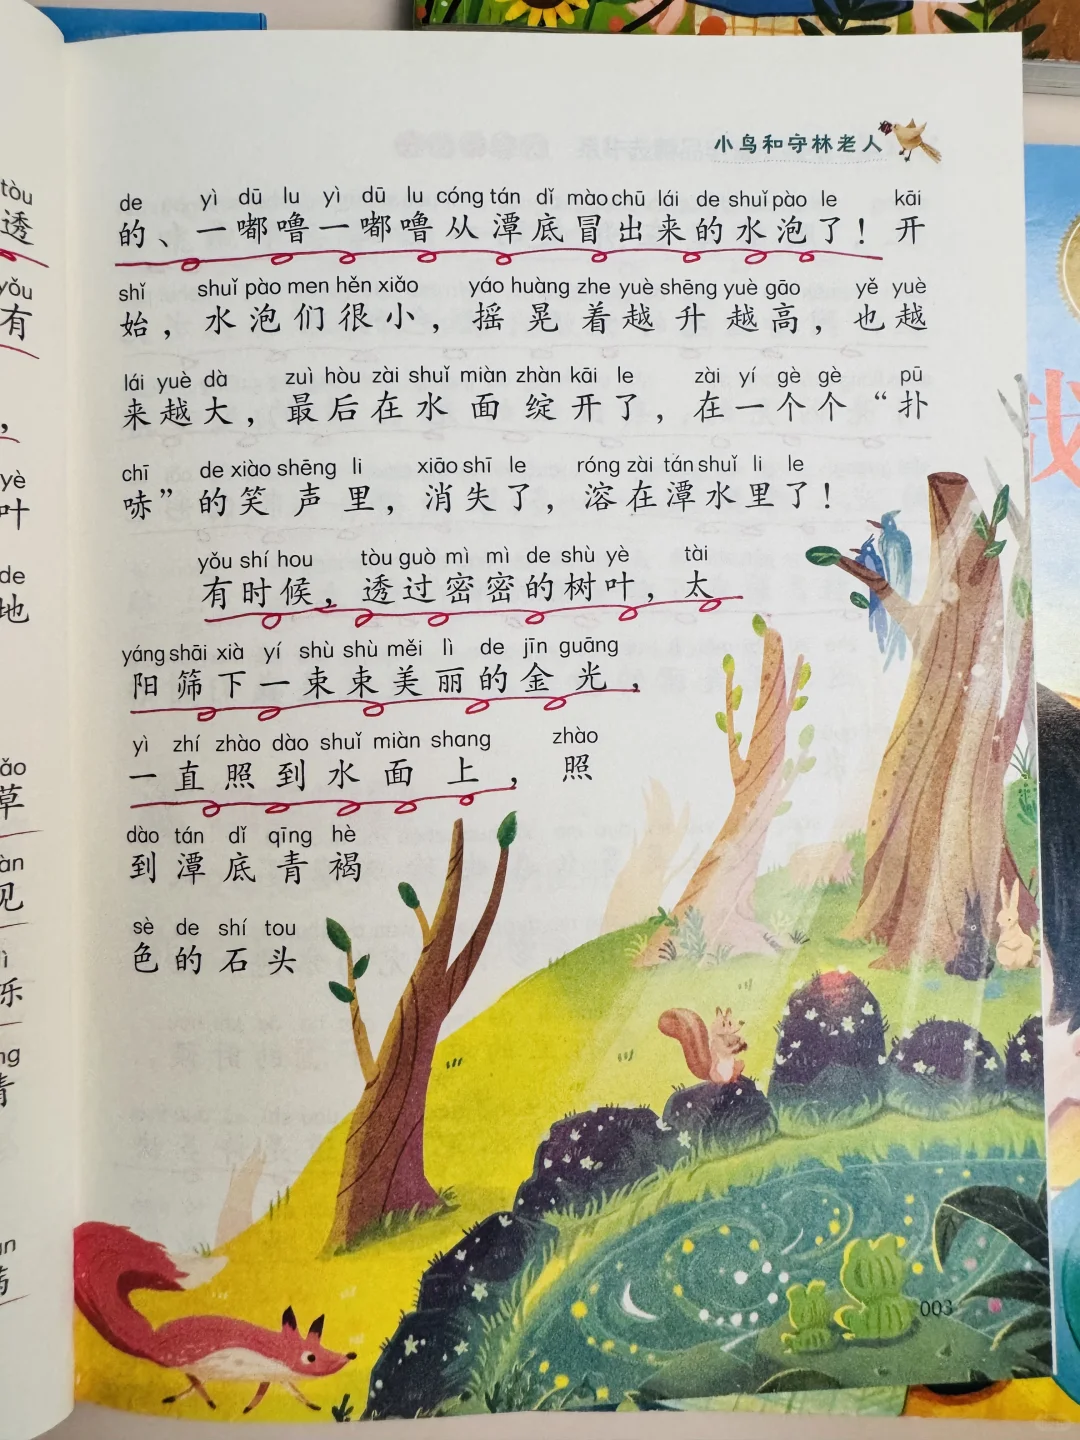 小鸟和守林老人
de yì dū lu yì dū lu cóng tán dǐ mào chū lái de shuǐ pào le kāi
的、一嘟噜一嘟噜从潭底冒出来的水泡了！开
shǐ shuǐ pào men hěn xiǎo yáo huàng zhe yuè shēng yuè gāo yě yuè
始，水泡们很小，摇晃着越升越高，也越
lái yuè dà zuì hòu zài shuǐ miàn zhàn kāi le zài yí gè gè pū
来越大，最后在水面绽开了，在一个个“扑
chī de xiào shēng li xiāo shī le róng zài tán shuǐ li le
哧”的笑声里，消失了，溶在潭水里了！
yǒu shí hou tòu guò mì mì de shù yè tài
有时候，透过密密的树叶，太
yáng shāi xià yí shù shù měi lì de jīn guāng
阳筛下一束束美丽的金光，
yì zhí zhào dào shuǐ miàn shang zhào
一直照到水面上，照
dào tán dǐ qīng hè
到潭底青褐
sè de shí tou
色的石头
003
tòu
透
yǒu
有
，
yè
叶
de
地
草
见
乐